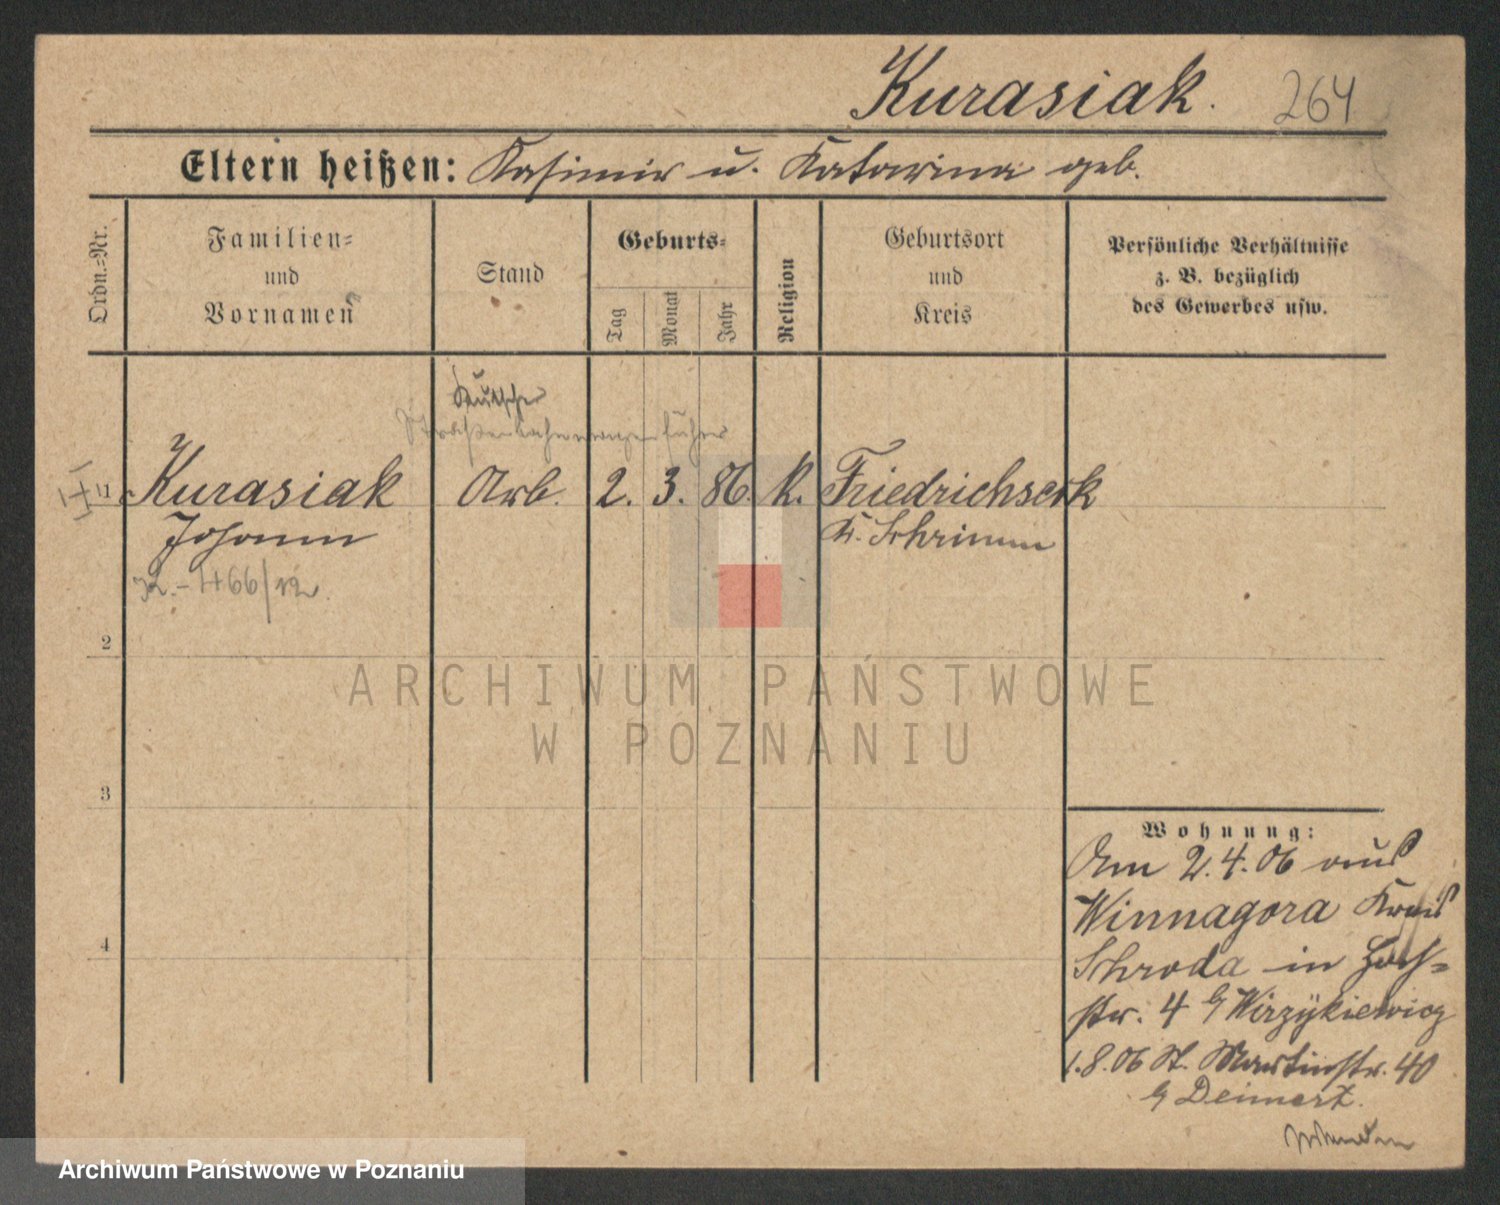 Kurasiak. 264
Eltern heißen: Kasimir u. Katarina geb.
Ordn.=Nr.
Familien=
und
Vornamen
Stand
Geburts=
Tag
Monat
Jahr
Religion
Geburtsort
und
Kreis
Persönliche Verhältnisse
z. B. bezüglich
des Gewerbes usw.
Kutscher
Straßenbahnwagenführer
1 Kurasiak Arb. 2. 3. 86. K. Friedrichseck
Johann Kr. Schrimm
466/12.
2
3
4
ARCHIWUM PAŃSTWOWE
W POZNANIU
Wohnung:
Am 2.4.06 aus
Winnagora Kreis
Schroda in
str. 4 b/ Wirzykiewicz
1.8.06 St. Martinstr. 40
b/ Deimert.
Archiwum Państwowe w Poznaniu